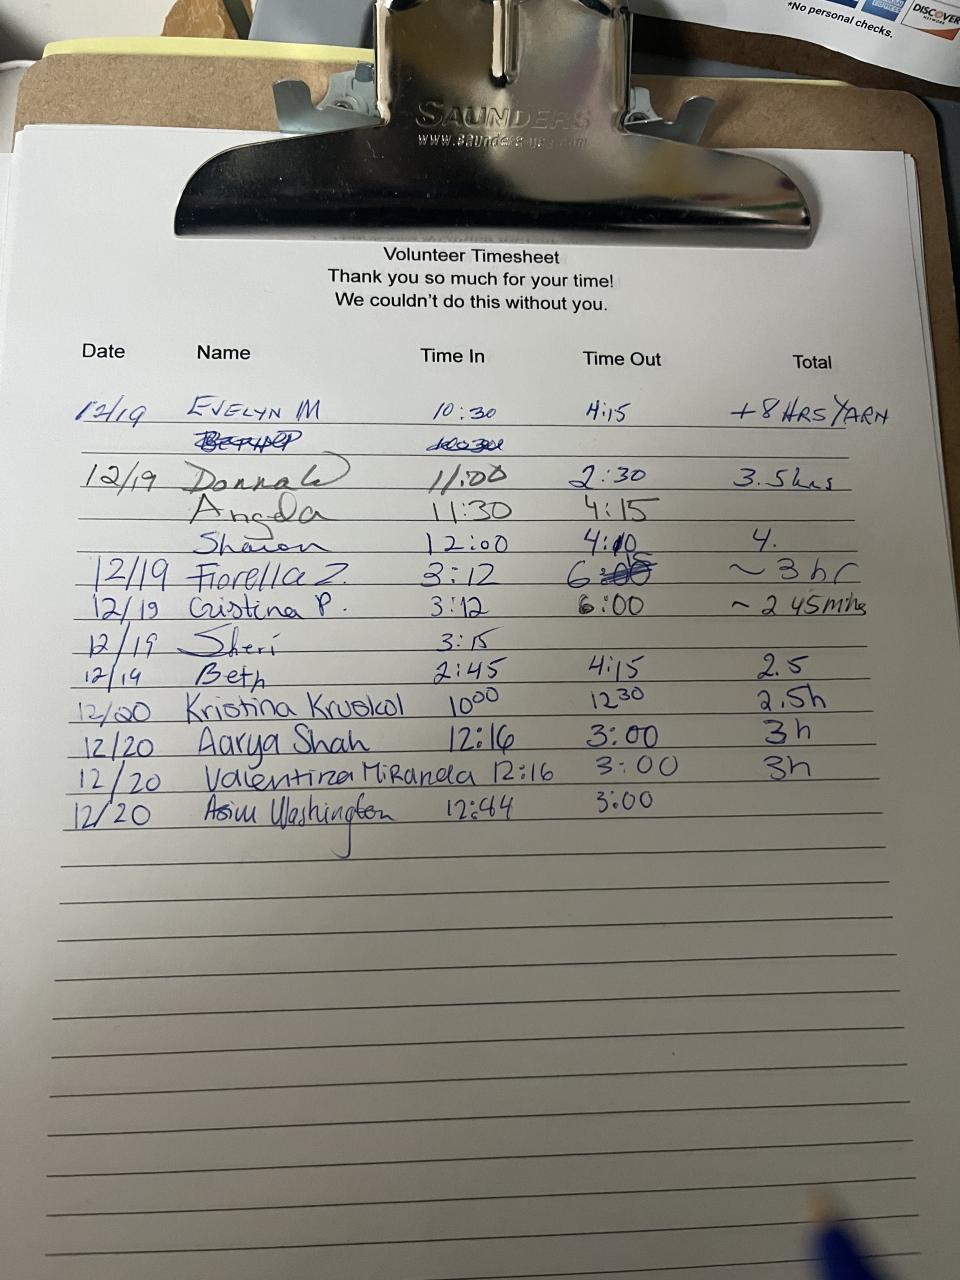 *No personal checks.
DISCOVER
NETWORK
SAUNDERS
www.saunders-usa.com
Volunteer Timesheet
Thank you so much for your time!
We couldn't do this without you.
Date Name Time In Time Out Total
12/19 EVELYN M 10:30 4:15 +8 HRS YARN
12/19 Donna W 11:00 2:30 3.5hrs
Angela 11:30 4:15
Sharon 12:00 4:10 4.
12/19 Fiorella Z. 3:12 6:15 ~3 hr
12/19 Cristina P. 3:12 6:00 ~2 45mins
12/19 Sheri 3:15
12/19 Beth 2:45 4:15 2.5
12/20 Kristina Kruskol 10:00 12:30 2.5h
12/20 Aarya Shah 12:16 3:00 3h
12/20 Valentina MiRanda 12:16 3:00 3h
12/20 Washington 12:44 3:00